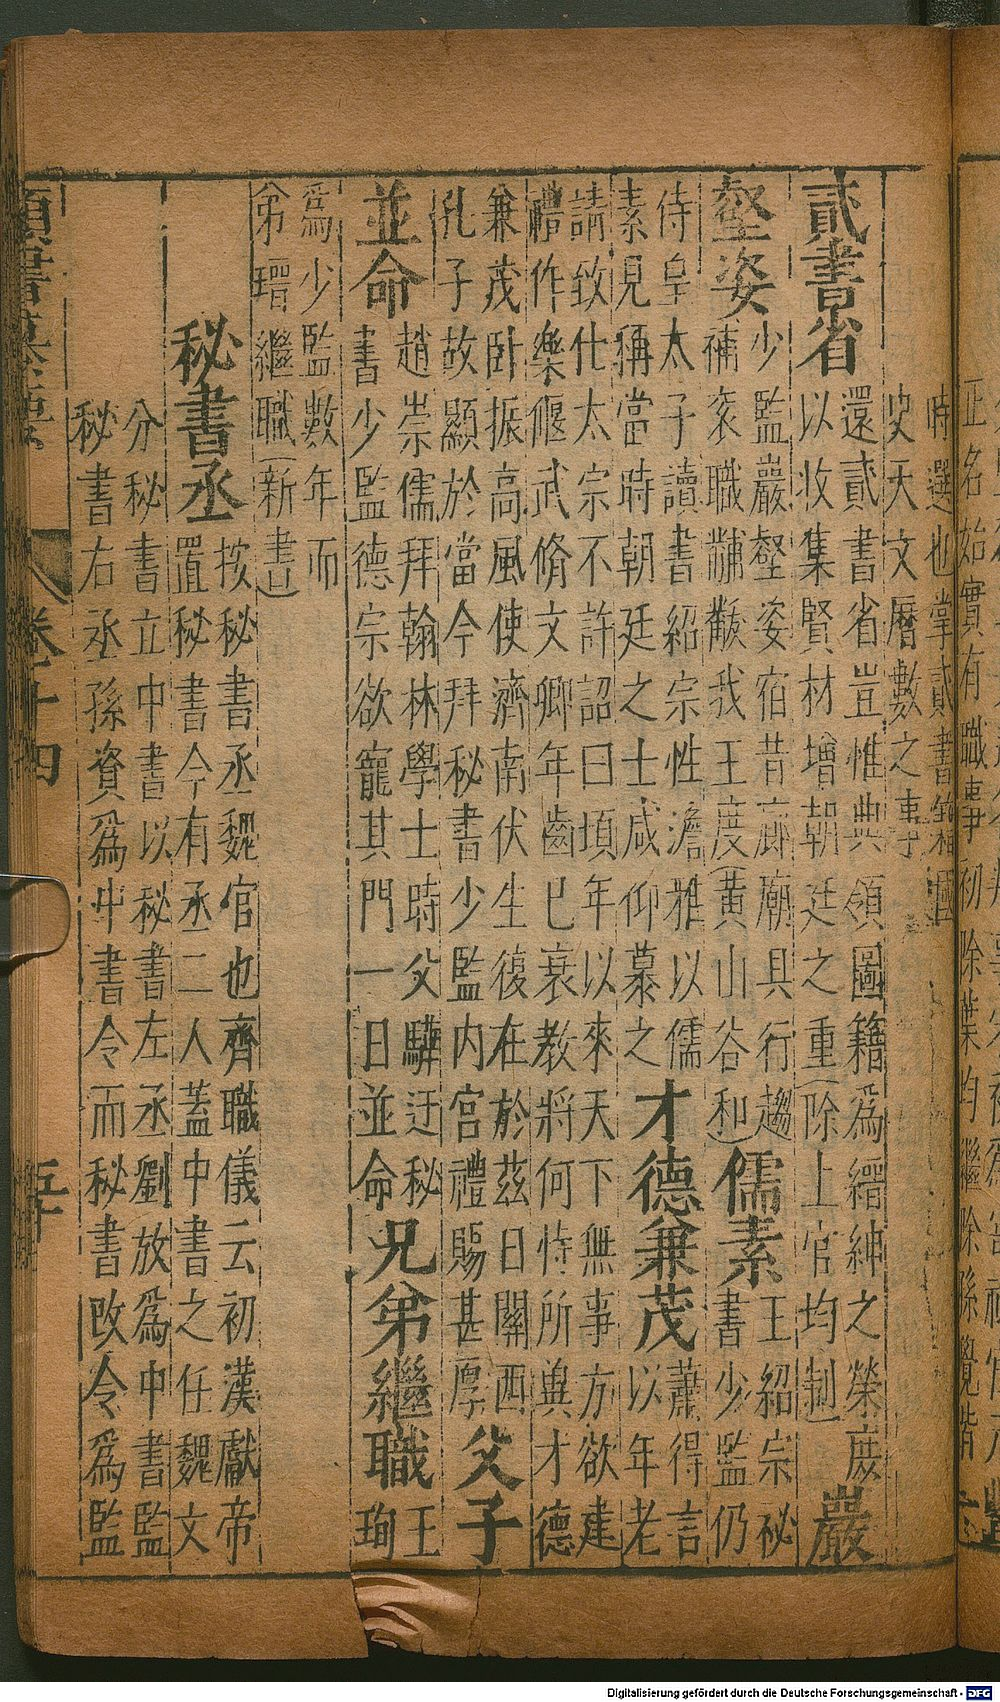 正名始實有職事初除葉均繼除孫覺皆
時選也掌貳書籍圖
史天文曆數之事
貳書省
還貳書省豈惟典領圖籍為縉紳之榮庶
以收集賢材增朝廷之重(除上官均制)
嚴
壑姿
少監嚴壑姿宿昔廊廟具行趨
補袞職黼黻我王度(黃山谷和)
儒素
王紹宗祕
書少監仍
侍皇太子讀書紹宗性澹雅以儒
素見稱當時朝廷之士咸仰慕之
才德兼茂
蕭得言
以年老
請致仕太宗不許詔曰頃年以來天下無事方欲建
禮作樂偃武脩文卿年齒已衰教將何恃所與才德
兼茂臥振高風使濟南伏生復在於茲日關西
孔子故顯於當今拜秘書少監内宫禮賜甚厚
父子
並命
趙崇儒拜翰林學士時父驊迂秘
書少監德宗欲寵其門一日並命
兄弟繼職
王
珣
為少監數年而
弟瑨繼職(新書)
秘書丞
按秘書丞魏官也齊職儀云初漢獻帝
置秘書令有丞二人蓋中書之任魏文
分秘書立中書以秘書左丞劉放為中書監
秘書右丞孫資為中書令而秘書改令為監
卷十四
五十
Digitalisierung gefördert durch die Deutsche Forschungsgemeinschaft - DFG